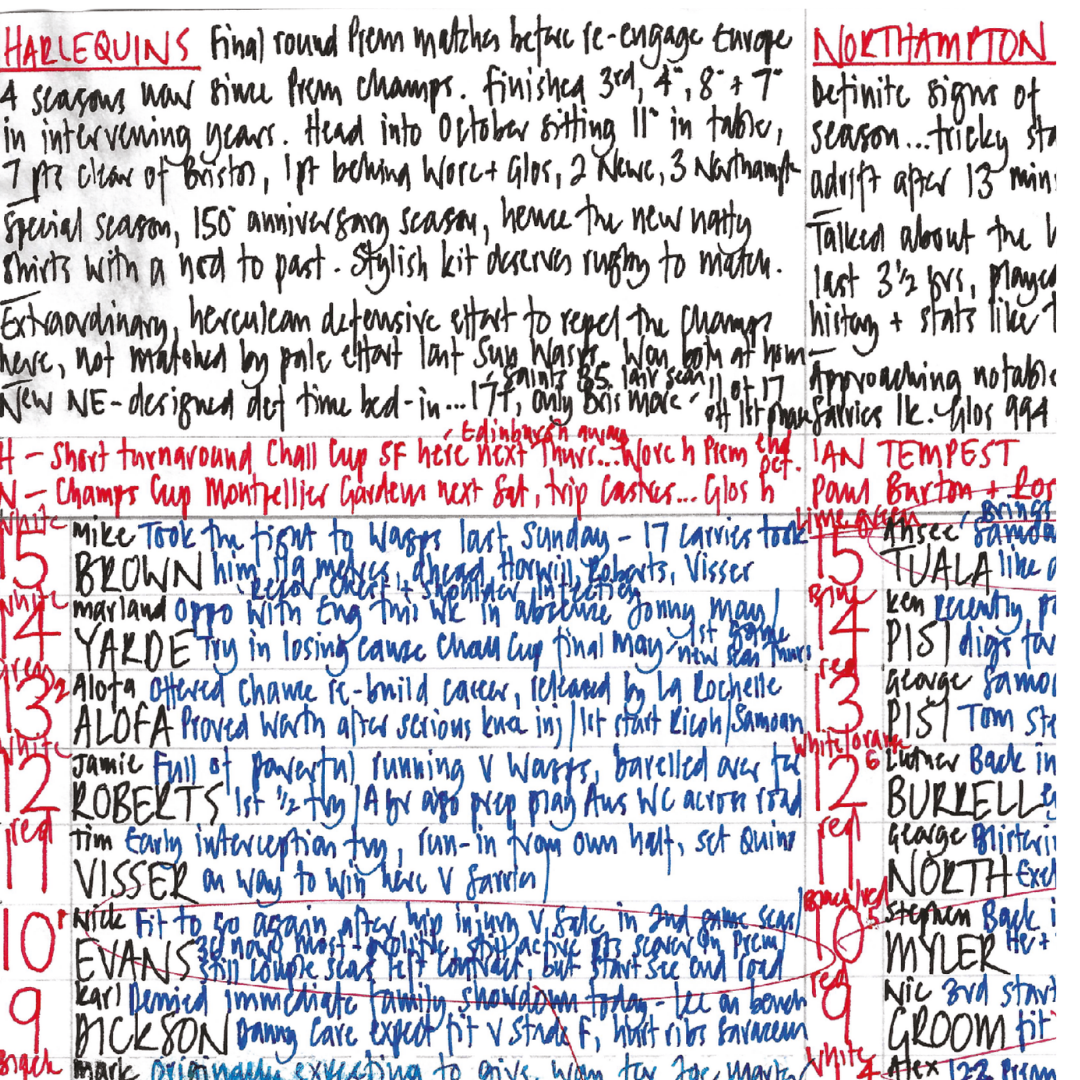 HARLEQUINS Final round Prem matches before re-engage Europe
4 seasons now since Prem champs. Finished 3rd, 4", 8" + 7"
in intervening years. Head into October sitting 11" in table,
7 pts clear of Bristol, 1pt behind Worc + Glos, 2 Newc, 3 Northampt
Special season, 150" anniversary season, hence the new natty
shirts with a nod to past. Stylish kit deserves rugby to match.
Extraordinary, herculean defensive effort to repel the champs
here, not matched by pale effort last Sun Wasps. Won both at hom
Saints 85 last seas
New NE-designed def time bed-in... 17t, only Bris more 11 of 17
off 1st phase
Edinburgh away
H - Short turnaround Chall Cup SF here next Thurs... Worc h Prem end
Oct.
N - Champs Cup Montpellier Gardens next Sat, trip Castres... Glos h
NORTHAMPTON
Definite signs of
season... tricky sta
adrift after 13 min
Talked about the
last 3½ yrs, playe
history + stats like
Approaching notable
Sarries lc. Glos 994
IAN TEMPEST
Paul Burton + Ros
White
15 Mike BROWN Took the fight to Wasps last Sunday - 17 carries took
him 119 metres, ahead Horwill, Roberts, Visser
Recov chest + shoulder infection
White
14 Marland YARDE Oppo with Eng this wk in absence Jonny May /
Try in losing cause Chall Cup final May 1st game
new seas Thurs
13 Alofa ALOFA Offered chance re-build career, released by La Rochelle
Proved worth after serious knee inj / 1st start Ricoh / Samoan
White
12 Jamie ROBERTS Full of powerful running v Wasps, barelled over for
1st ½ try / A yr ago prep play Aus WC across road
red
11 Tim VISSER Early interception try, run-in from own half, set Quins
on way to win here v Sarries /
10 Nick EVANS Fit to go again after hip injury v Sale in 2nd game seas /
36 now, most-prolific, still active pts scorer in Prem /
Still couple seas left contract, but start see end road
9 Karl DICKSON Denied immediate family showdown today - Lee on bench
Danny Care expect fit v Stade F, hurt ribs Saracens
Black
Mark originally expecting to give way for Joe Marler
Lime green
15 Ahsee TUALA Brings
Samoa
like
Blue
14 Ken PISI recently
digs
red
13 George PISI Samo
Tom Ste
White
6
12 Luther BURRELL Back in
red
11 George NORTH Blisterin
Exc
10 Stephen MYLER Back i
5
red
9 Nic GROOM 3rd start
fit
White 4
Alex 122 Prem